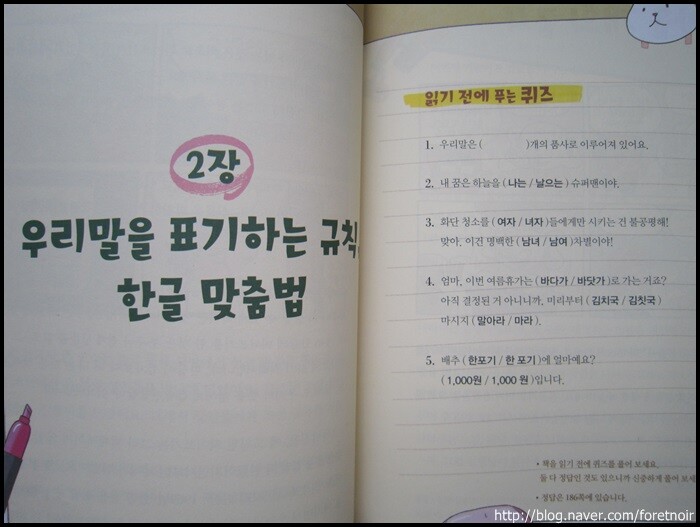 2장
우리말을 표기하는 규칙,
한글 맞춤법
읽기 전에 푸는 퀴즈
1. 우리말은 ( )개의 품사로 이루어져 있어요.
2. 내 꿈은 하늘을 ( 나는 / 날으는 ) 슈퍼맨이야.
3. 화단 청소를 ( 여자 / 녀자 )들에게만 시키는 건 불공평해!
맞아, 이건 명백한 ( 남녀 / 남여 )차별이야!
4. 엄마, 이번 여름휴가는 ( 바다가 / 바닷가 )로 가는 거죠?
아직 결정된 거 아니니까, 미리부터 ( 김치국 / 김칫국 )
마시지 ( 말아라 / 마라 ).
5. 배추 ( 한포기 / 한 포기 )에 얼마예요?
( 1,000원 / 1,000 원 )입니다.
• 책을 읽기 전에 퀴즈를 풀어 보세요.
둘 다 정답인 것도 있으니까 신중하게 풀어 보세
• 정답은 186쪽에 있습니다.
http://blog.naver.com/foretnoir